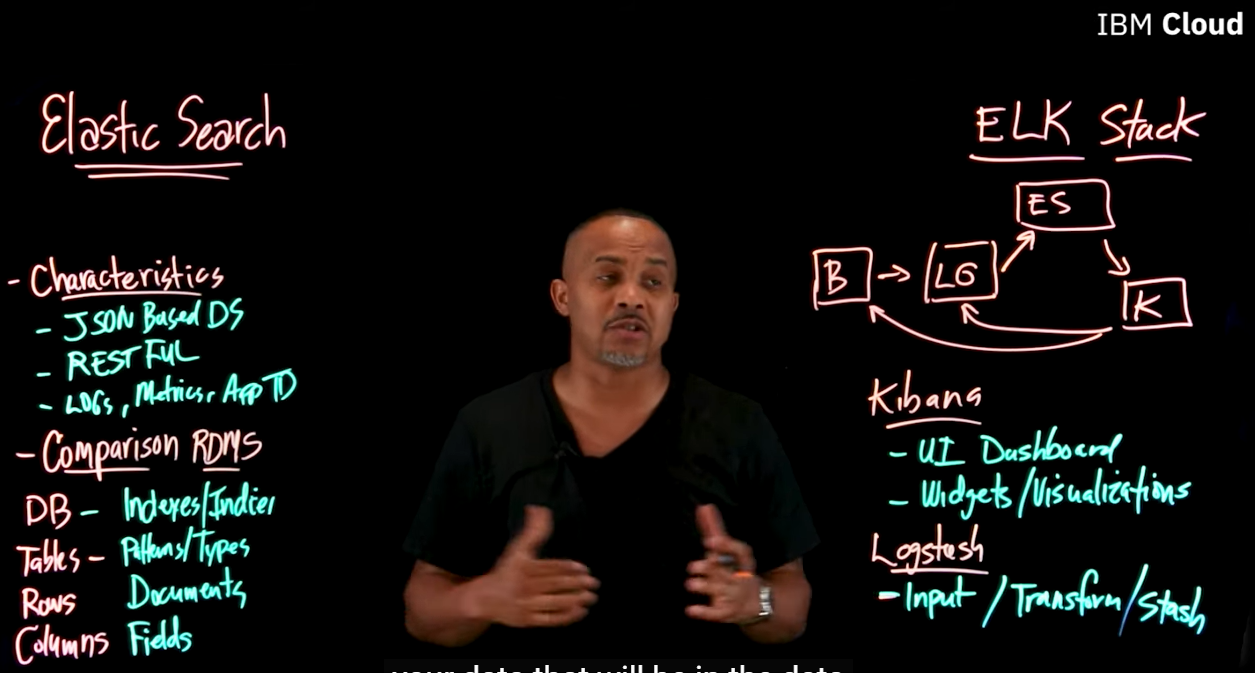 IBM Cloud
Elastic Search
- Characteristics
- JSON Based DS
- RESTFUL
- LOGs, Metrics, App TD
- Comparison RDMS
DB - Indexes/Indices
Tables - Patterns/Types
Rows Documents
Columns Fields
ELK Stack
ES
B
LG
K
Kibana
- UI Dashboard
- Widgets/Visualizations
Logstash
- Input / Transform / Stash
your data that will be in the data